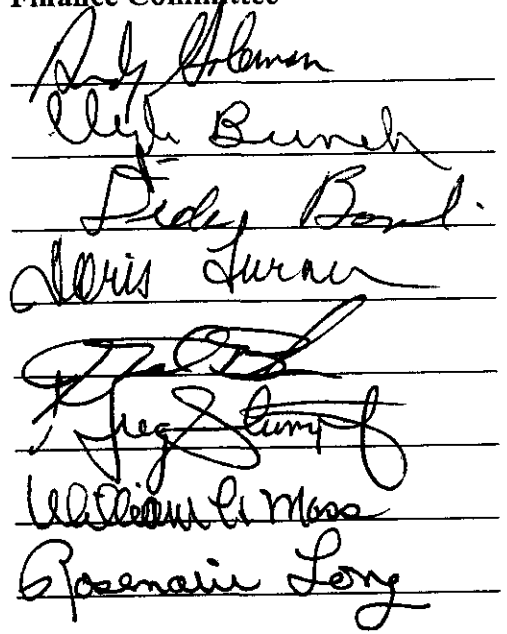 Finance Committee
Andy Goleman
Clyde Bunch
Doris Turner
Greg Stumpf
William A Moss
Rosemarie Long